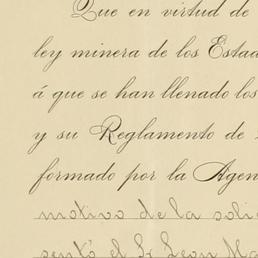 Que en virtud de
ley minera de los Estad
á que se han llenado los
y su Reglamento de
formado por la Agen
motivo de la soli
sentó el Sr. Leon Ma